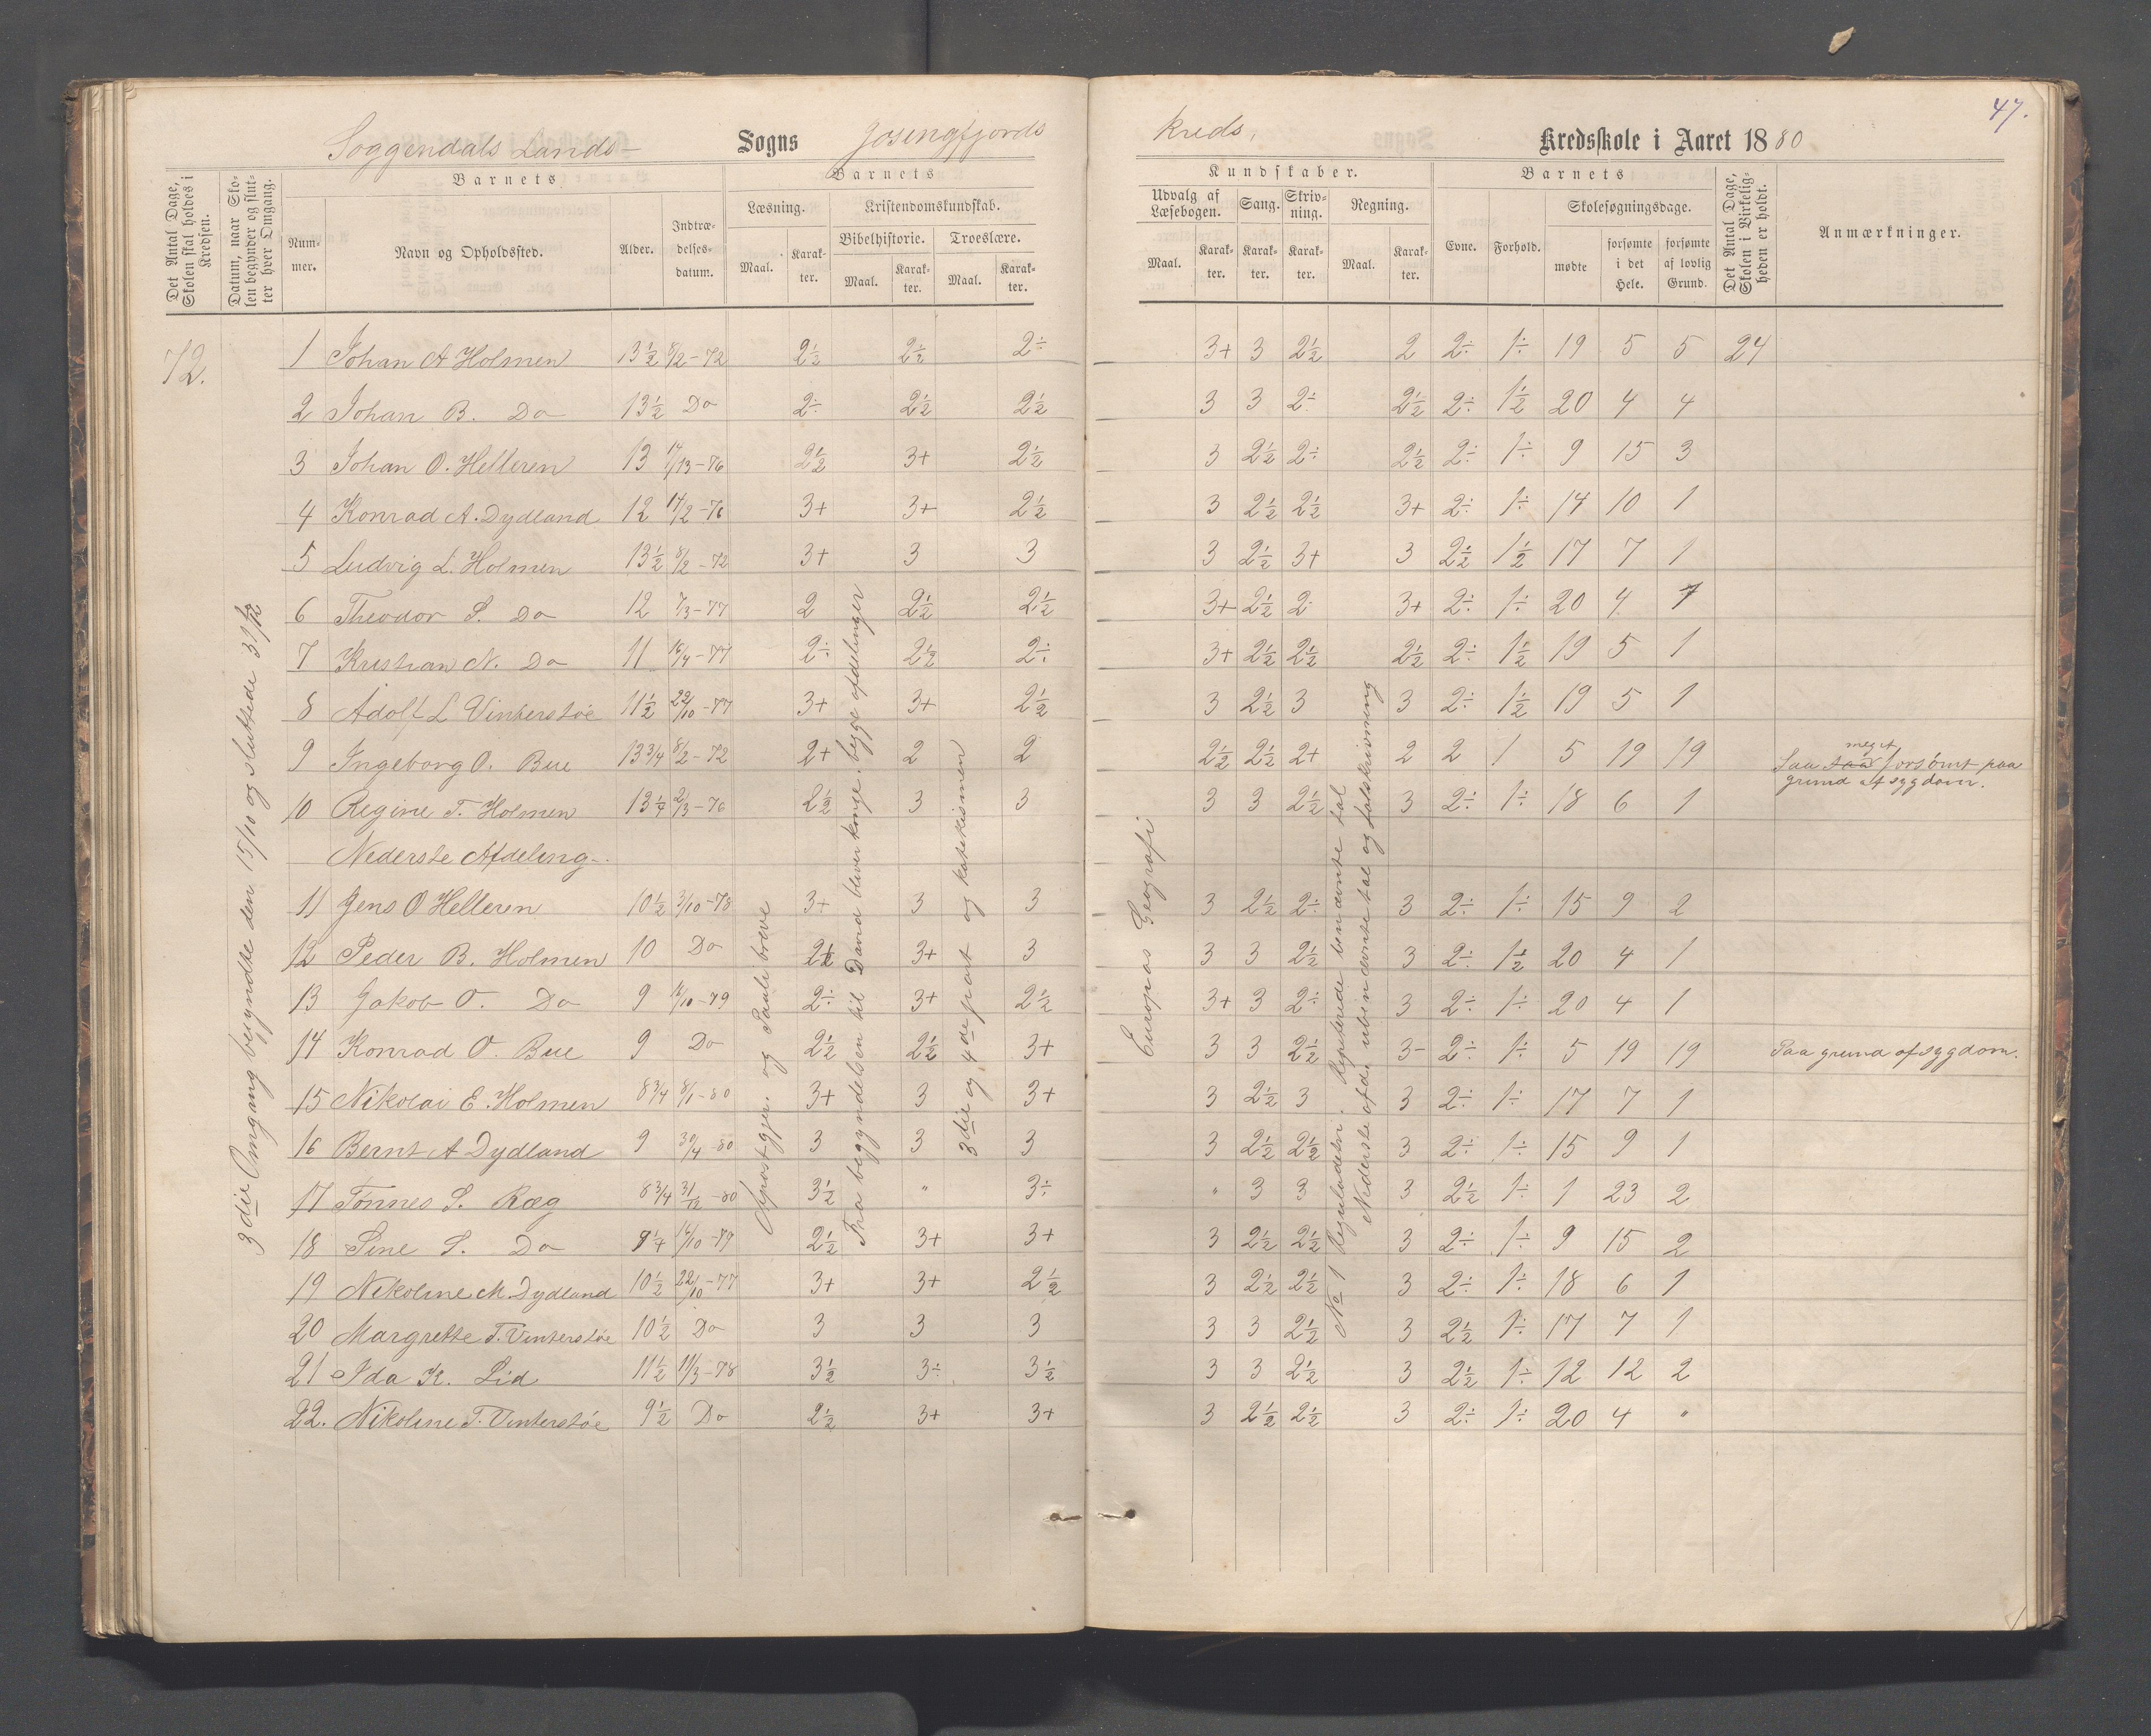 47.
Soggendals Lands- Sogns Josengfjords kreds, Kredsskole i Aaret 1880
Det Antal Dage, Skolen skal holdes i Kredsen.
Datum, naar Skolen begynder og slutter hver Omgang.
Barnets
Nummer.
Navn og Opholdssted.
Alder.
Indtrædelsesdatum.
Barnets
Læsning.
Maal.
Karakter.
Kristendomskundskab.
Bibelhistorie.
Maal.
Karakter.
Troeslære.
Maal.
Karakter.
Kundskaber.
Udvalg af Læsebogen.
Maal.
Karakter.
Sang.
Karakter.
Skrivning.
Karakter.
Regning.
Maal.
Karakter.
Barnets
Evne.
Forhold.
Skolesøgningsdage.
mødte
forsømte i det Hele.
forsømte af lovlig Grund.
Det Antal Dage, Skolen i Virkeligheden er holdt.
Anmærkninger.
72.
3die Omgang begyndte den 15/10 og sluttede 31/12
1 Johan A Holmen 13½ 8/2-72 2½ 2½ 2÷ 3+ 3 2½ 2 2÷ 1÷ 19 5 5 24
2 Johan B. Do 13½ Do 2÷ 2½ 2½ 3 3 2÷ 2½ 2÷ 1½ 20 4 4
3 Johan O. Helleren 13 2½ 3+ 2½ 3 2½ 2÷ 2½ 2÷ 1÷ 9 15 3
4 Konrad A. Dydland 12 14/2-76 3+ 3+ 2½ 3 2½ 2½ 3+ 2÷ 1÷ 14 10 1
5 Ludvig L. Holmen 13½ 8/2-72 3+ 3 3 3 2½ 3+ 3 2½ 1½ 17 7 1
6 Theodor S. Do 12 7/3-77 2 2½ 2½ 3+ 2½ 2÷ 3+ 2÷ 1÷ 20 4 1
7 Kristian N. Do 11 16/4-77 2÷ 2½ 2÷ 3+ 2½ 2½ 2½ 2÷ 1½ 19 5 1
8 Adolf L Vinterstøe 11½ 22/10-77 3+ 3+ 2½ 3 2½ 3 3 2÷ 1½ 19 5 1
9 Ingeborg O. Bue 13¾ 8/2-72 2+ 2 2 2½ 2½ 2+ 2 2 1 5 19 19 Saa meget forsømt paa
grund af sygdom.
10 Regine T. Holmen 13¼ 2/3-76 2½ 3 3 3 3 2½ 3 2÷ 1÷ 18 6 1
Nederste Afdeling-
11 Jens O Helleren 10½ 3/10-78 3+ 3 3 3 2½ 2÷ 3 2÷ 1÷ 15 9 2
12 Peder B. Holmen 10 Do 2½ 3+ 3 3 3 2½ 3 2÷ 1½ 20 4 1
13 Jakob O. Do 9 16/10-79 2÷ 3+ 2½ 3+ 3 2÷ 3 2÷ 1÷ 20 4 1
14 Konrad O. Bue 9 Do 2½ 2½ 3+ 3 3 2½ 3- 2÷ 1÷ 5 19 19 Paa grund af sygdom.
15 Nikolai E. Holmen 8¾ 8/1-80 3+ 3 3+ 3 2½ 3 3 2÷ 1÷ 17 7 1
16 Bernt A Dydland 9 30/4-80 3 3 3 3 2½ 2½ 3 2÷ 1÷ 15 9 1
17 Tønnes S. Ræg 8¾ 31/12-80 3½ " 3÷ " 3 3 3 2½ 1÷ 1 23 2
18 Sine S. Do 9¼ 16/10-79 2½ 3+ 3+ 3 2½ 2½ 3 2÷ 1÷ 9 15 2
19 Nikoline M. Dydland 10½ 22/10-77 3+ 3+ 2½ 3 2½ 2½ 3 2÷ 1÷ 18 6 1
20 Margrethe T. Vinterstøe 10½ Do 3 3 3 3 3 2½ 3 2½ 1÷ 17 7 1
21 Ida K. Lid 11½ 11/3-78 3½ 3÷ 3½ 3 3 2½ 3 2½ 1÷ 12 12 2
22. Nikoline T. Vinterstøe 9½ Do 2½ 3+ 3+ 3 2½ 2½ 3 2÷ 1÷ 20 4 "
Apostgjer. og Pauli breve
Fra begyndelsen til David bliver konge. begge afdelinger
3die og 4de part og katekismen
Europas Geografi
No 1 Reguladetri. Repeterede benævnte tal
Nederste afd. ubenævnte tal og talskrivning